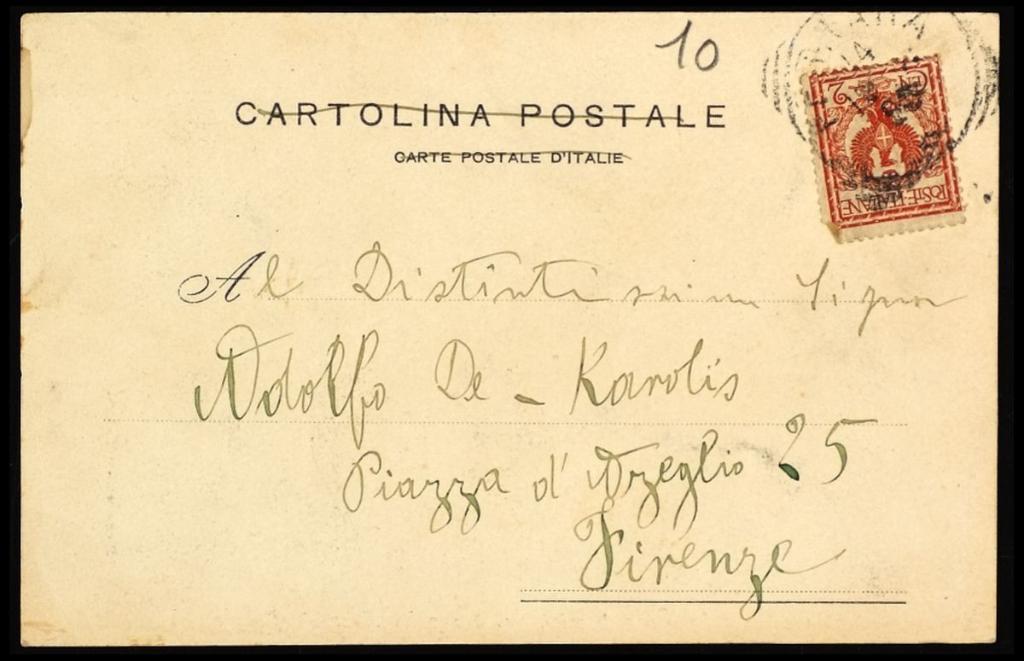 10
CARTOLINA POSTALE
CARTE POSTALE D'ITALIE
CEN. 2
POSTE ITALIANE
Al Distintissimo Signor
Adolfo De-Karolis
Piazza d'Azeglio 25
Firenze